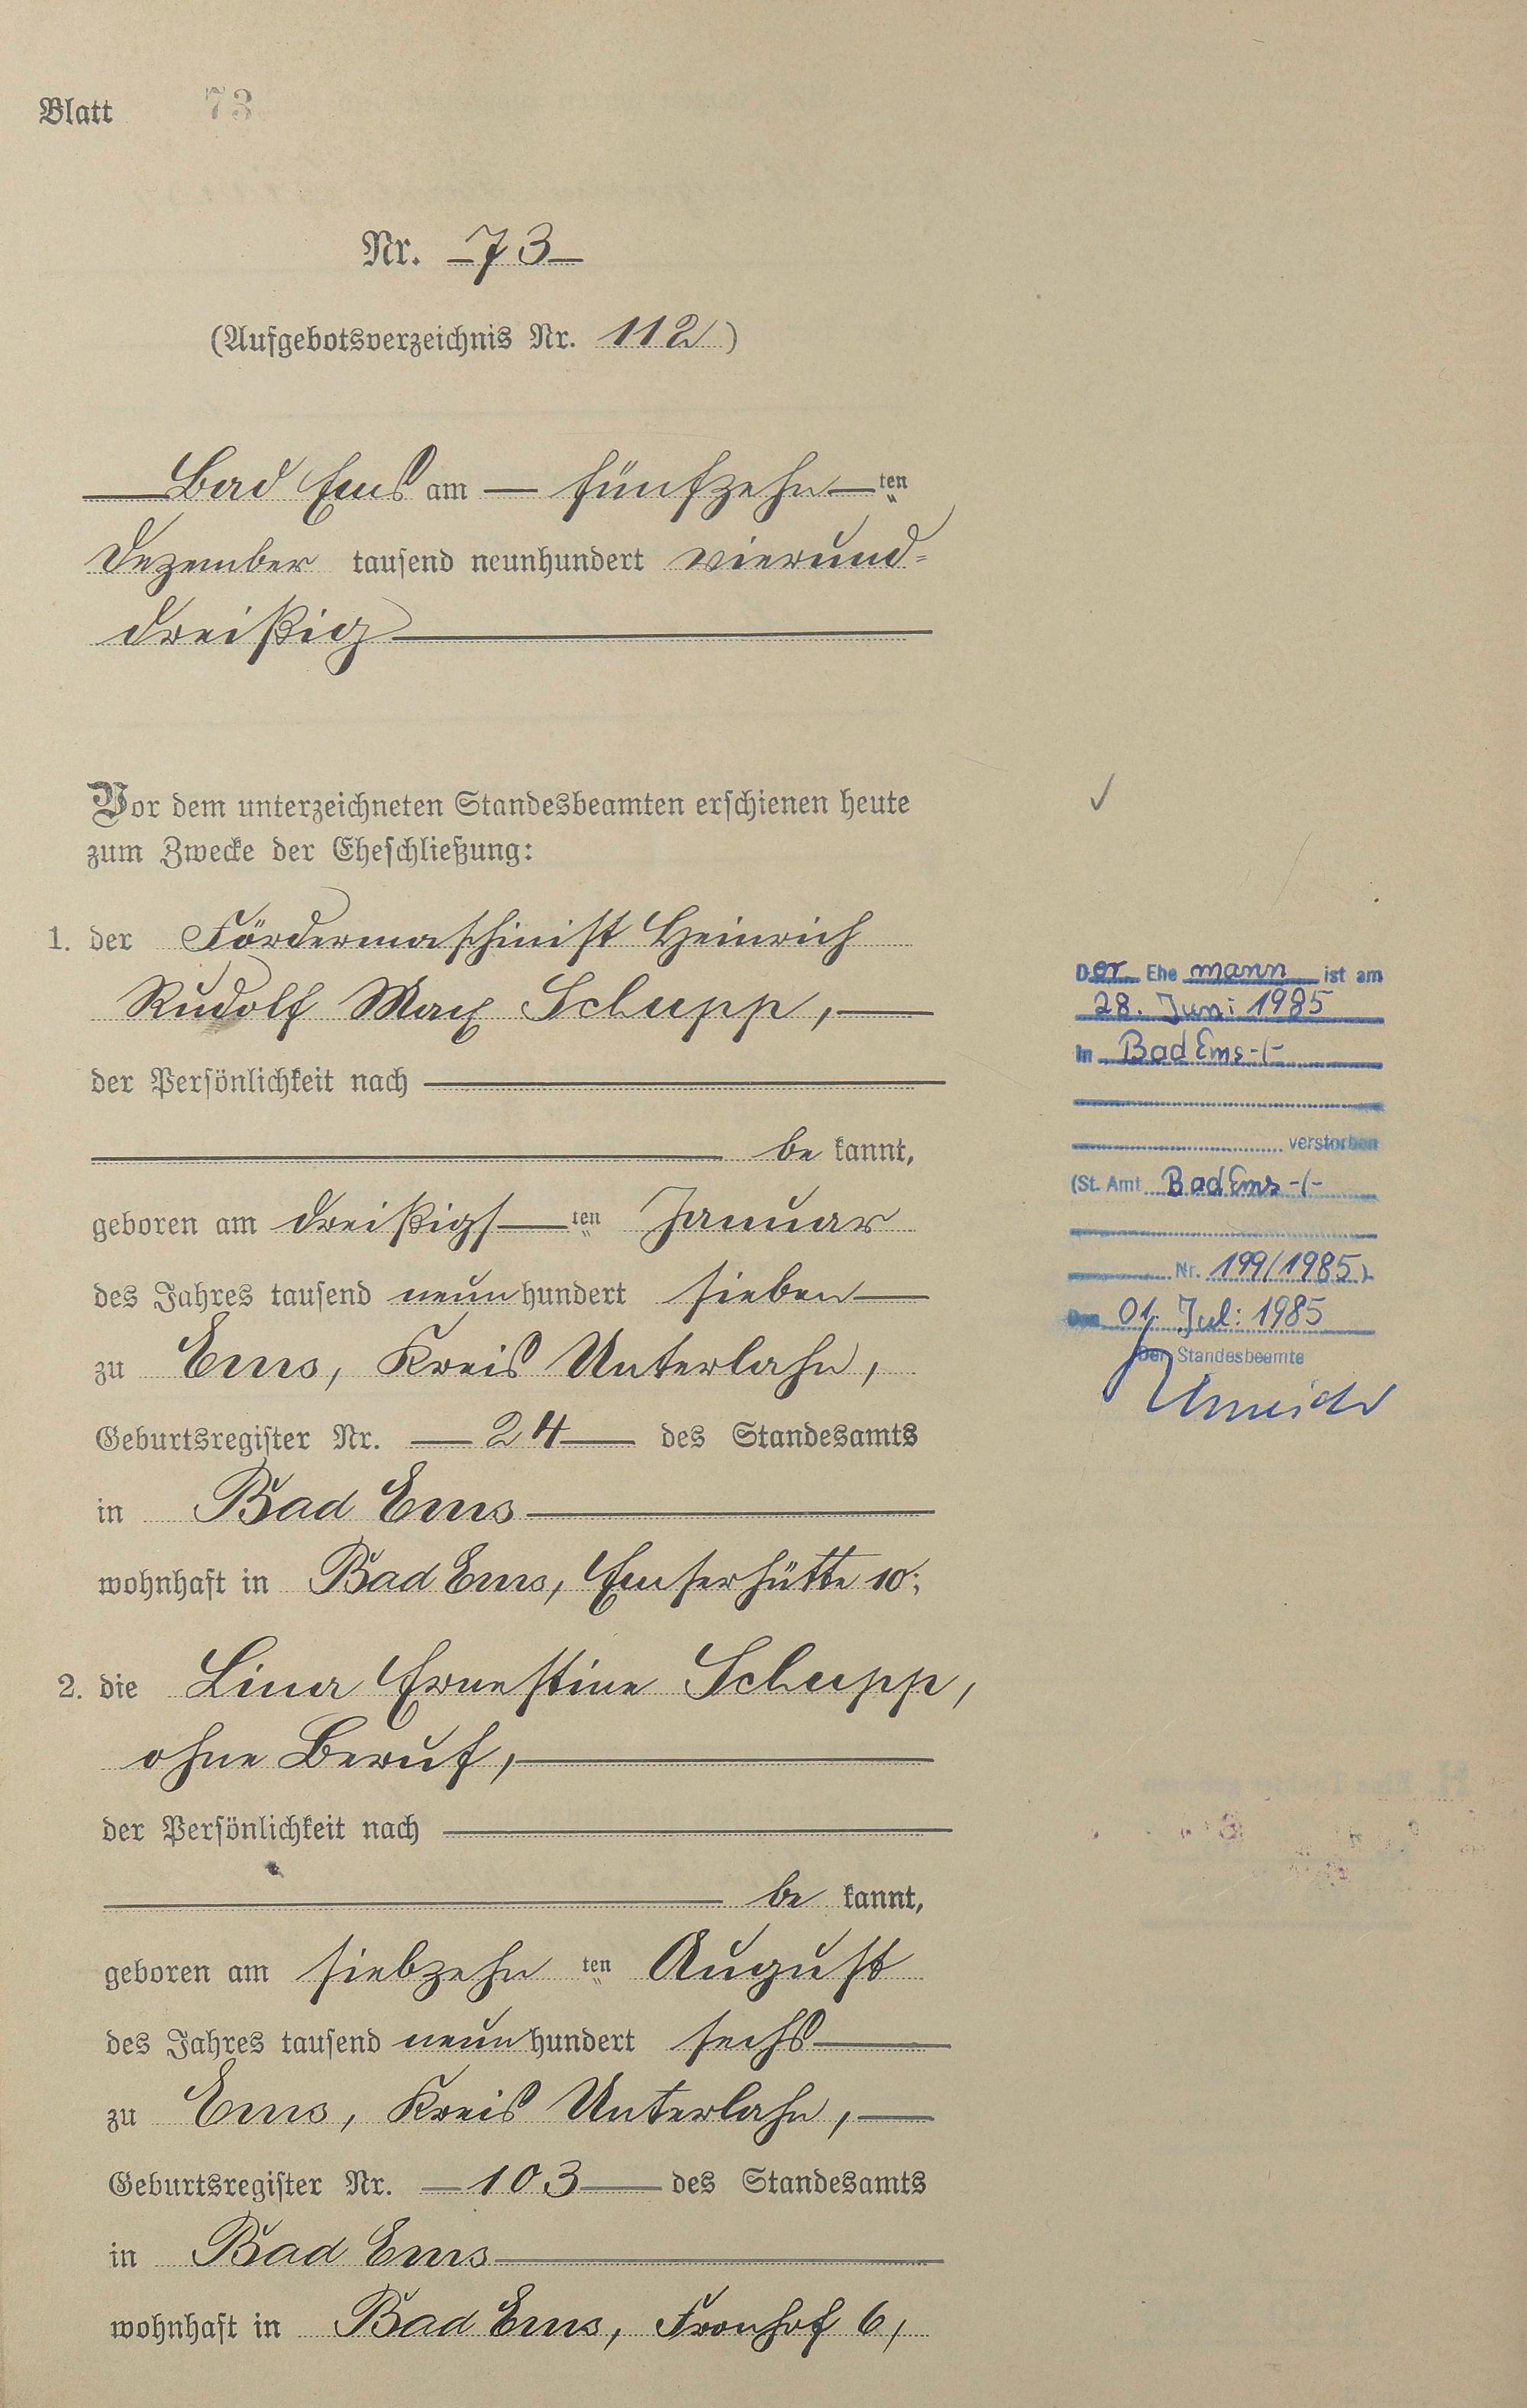 Blatt 73
Nr. 73
(Aufgebotsverzeichnis Nr. 112)
Bad Ems am fünfzehn ten
Dezember tausend neunhundert vierund-
dreißig
Vor dem unterzeichneten Standesbeamten erschienen heute
zum Zwecke der Eheschließung:
1. der Fördermaschinist Heinrich
Rudolf Max Schupp,
der Persönlichkeit nach
be kannt,
geboren am dreißigs ten Januar
des Jahres tausend neun hundert sieben
zu Ems, Kreis Unterlahn,
Geburtsregister Nr. 24 des Standesamts
in Bad Ems
wohnhaft in Bad Ems, Emserhütte 10;
2. die Lina Ernestine Schupp,
ohne Beruf,
der Persönlichkeit nach
be kannt,
geboren am siebzehn ten August
des Jahres tausend neun hundert sechs
zu Ems, Kreis Unterlahn,
Geburtsregister Nr. 103 des Standesamts
in Bad Ems
wohnhaft in Bad Ems, Fronhof 6,
Der Ehe mann ist am
28. Juni 1985
in Bad Ems -/-
verstorben
(St. Amt Bad Ems -/-
Nr. 199/1985)
Den 01. Juli 1985
Der Standesbeamte